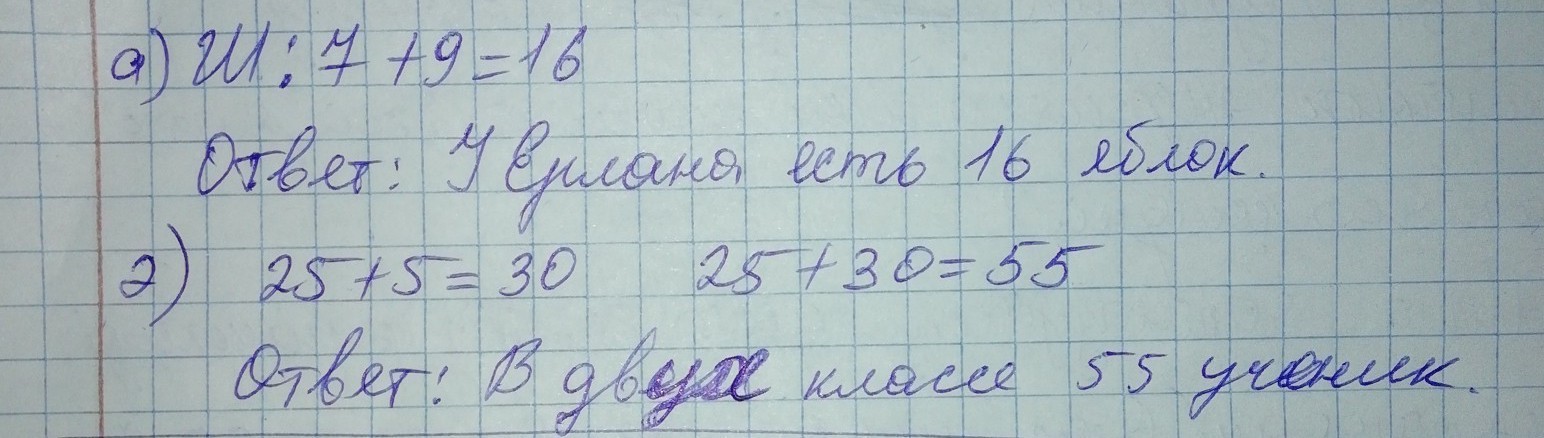 а) Ш: 7 + 9 = 16
Ответ: У Ерлана есть 16 яблок.
2) 25 + 5 = 30 25 + 30 = 55
Ответ: В двух классе 55 ученик.